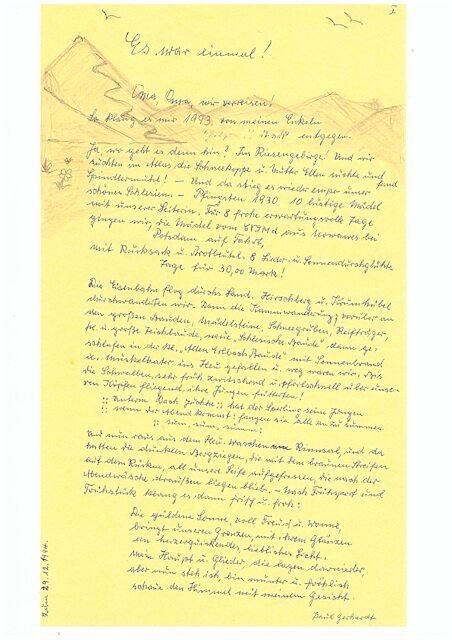 I
Es war einmal!
Oma, Oma, wir verreisen!
So klang es mir 1993 von meinen Enkeln
entgegen.
Ja, wo geht es denn hin? Ins Riesengebirge! Und wir
suchten im Atlas die Schneekoppe u. Mutter Ellen suchte und fand
Spindlermühle! — Und da stieg es wieder empor unser
schönes Schlesien. — Pfingsten 1930 10 lustige Mädel
mit unserer Leiterin. Für 8 frohe erwartungsvolle Tage
gingen wir, die Mädel vom aus Nowawes bei
Potsdam auf Fahrt,
mit Rucksack u. Brotbeutel. 8 Lieder- u. Sonnendurchglühte
Tage für 30,00 Mark!
Die Eisenbahn flog durchs Land. Hirschberg u. Krumhübel
durchwanderten wir. Dann die Kammwanderung; vorüber an
den großen Bauden, Mädelsteine, Schneegruben, Reifträger,
kl. u. große Teichbaude, neue "Schlesische Baude" dann ge-
schlafen in der kl. "Alten Schles. Baude" mit Sonnenbrand
u. Muskelkater ins Heu gefallen u. weg waren wir. Bis
die Schwalben, sehr früh zwitschernd u. pfeilschnell über unse-
ren Köpfen fliegend, ihre Jungen fütterten!
:: unterm Dach juchhe :: hat der Sperling seine Jungen
:: wenn der Abend kommt: fangen sie alle an zu summen
:: sum, sum, summ:
Und nun raus aus dem Heu. Waschen am Rinnsal, und da
hatten die dunklen Bergziegen, die mit dem braunen Streifen
auf dem Rücken, all unsere Seife aufgefressen, die nach der
Abendwäsche draußen liegen blieb. — Nach Frühsport und
Frühstück klang es dann frisch u. froh:
Die güldene Sonne, voll Freud u. Wonne,
bringt unseren Grenzen, mit ihrem Glänzen
ein herzerquickendes, liebliches Licht.
Mein Haupt u. Glieder, die lagen darnieder,
aber nun steh ich, bin munter u. fröhlich
schaue den Himmel mit meinem Gesicht.
Paul Gerhardt
29.12.1994.